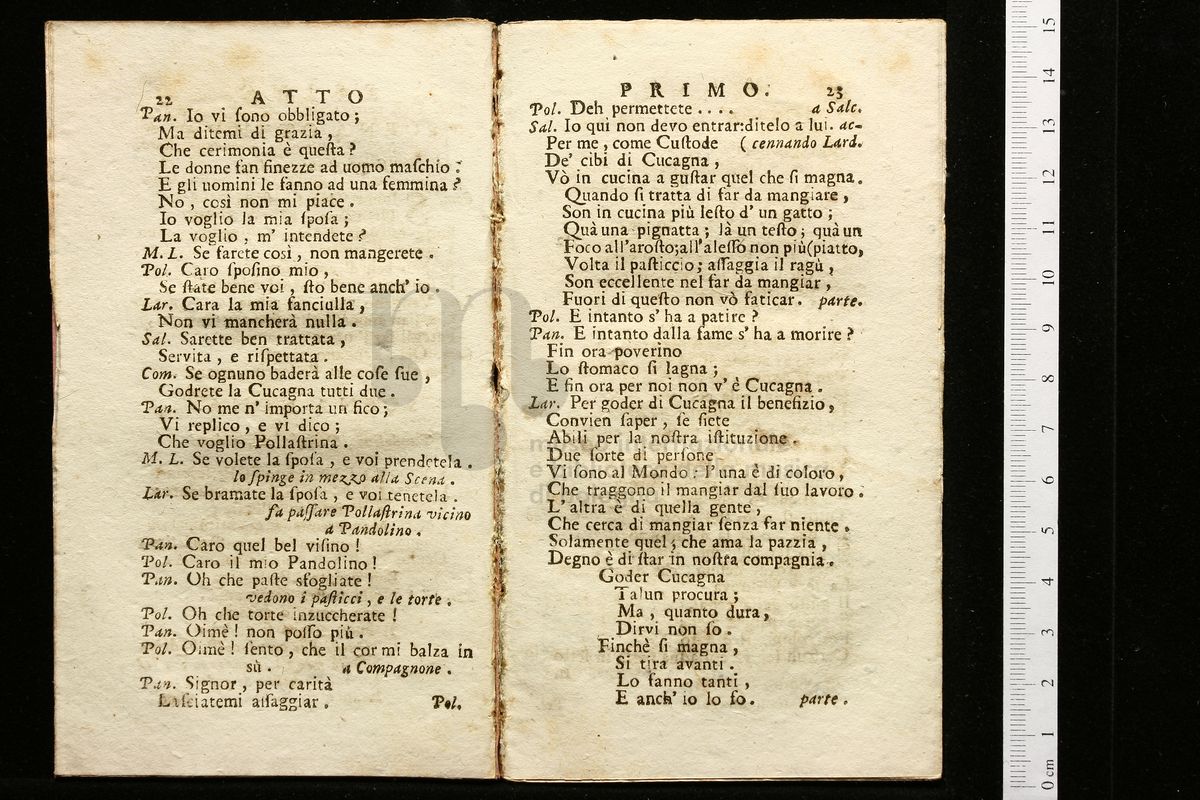 22 ATTO
Pan. Io vi ſono obbligato;
Ma ditemi di grazia,
Che cerimonia è queſta?
Le donne fan finezze ad uomo maſchio:
E gli uomini le fanno ad una femmina?
No, così non mi piace.
Io voglio la mia ſpoſa;
La voglio, m' intendete?
M. L. Se farete così, non mangerete.
Pol. Caro ſpoſino mio,
Se ſtate bene voi, ſto bene anch' io.
Lar. Cara la mia fanciulla,
Non vi mancherà nulla.
Sal. Sarette ben trattata,
Servita, e riſpettata.
Com. Se ognuno baderà alle coſe ſue,
Godrete la Cucagna tutti due.
Pan. No me n' importa un fico;
Vi replico, e vi dico;
Che voglio Pollaſtrina.
M. L. Se volete la ſpoſa, e voi prendetela.
lo ſpinge in mezzo alla Scena.
Lar. Se bramate la ſpoſa, e voi tenetela.
fa paſſare Pollaſtrina vicino
a Pandolino.
Pan. Caro quel bel viſino!
Pol. Caro il mio Pandolino!
Pan. Oh che paſte sfogliate!
vedono i paſticci, e le torte.
Pol. Oh che torte inzuccherate!
Pan. Oimè! non poſſo più.
Pol. Oimè! ſento, che il cor mi balza in
sù. a Compagnone.
Pan. Signor, per carità
Laſciatemi aſſaggiar. Pol.
PRIMO. 23
Pol. Deh permettete .... a Salc.
Sal. Io qui non devo entrar: ditelo a lui. ac-
Per me, come Cuſtode (cennando Lard.
De' cibi di Cucagna,
Vò in cucina a guſtar quel che ſi magna.
Quando ſi tratta di far da mangiare,
Son in cucina più leſto d' un gatto;
Quà una pignatta; là un teſto; quà un
Foco all'aroſto; all'aleſſo non più (piatto,
Volta il paſticcio; aſſaggia il ragù,
Son eccellente nel far da mangiar,
Fuori di queſto non vò faticar. parte.
Pol. E intanto s' ha a patire?
Pan. E intanto dalla fame s' ha a morire?
Fin ora poverino
Lo ſtomaco ſi lagna;
E fin ora per noi non v' è Cucagna.
Lar. Per goder di Cucagna il benefizio,
Convien ſaper, ſe ſiete
Abili per la noſtra iſtituzione.
Due ſorte di perſone
Vi ſono al Mondo: l' una è di coloro,
Che traggono il mangiar dal ſuo lavoro.
L' altra è di quella gente,
Che cerca di mangiar ſenza far niente.
Solamente quel; che ama la pazzia,
Degno è di ſtar in noſtra compagnia.
Goder Cucagna
Talun procura;
Ma, quanto dura,
Dirvi non ſo.
Finchè ſi magna,
Si tira avanti.
Lo fanno tanti,
E anch' io lo ſo. parte.
0 cm 1 2 3 4 5 6 7 8 9 10 11 12 13 14 15